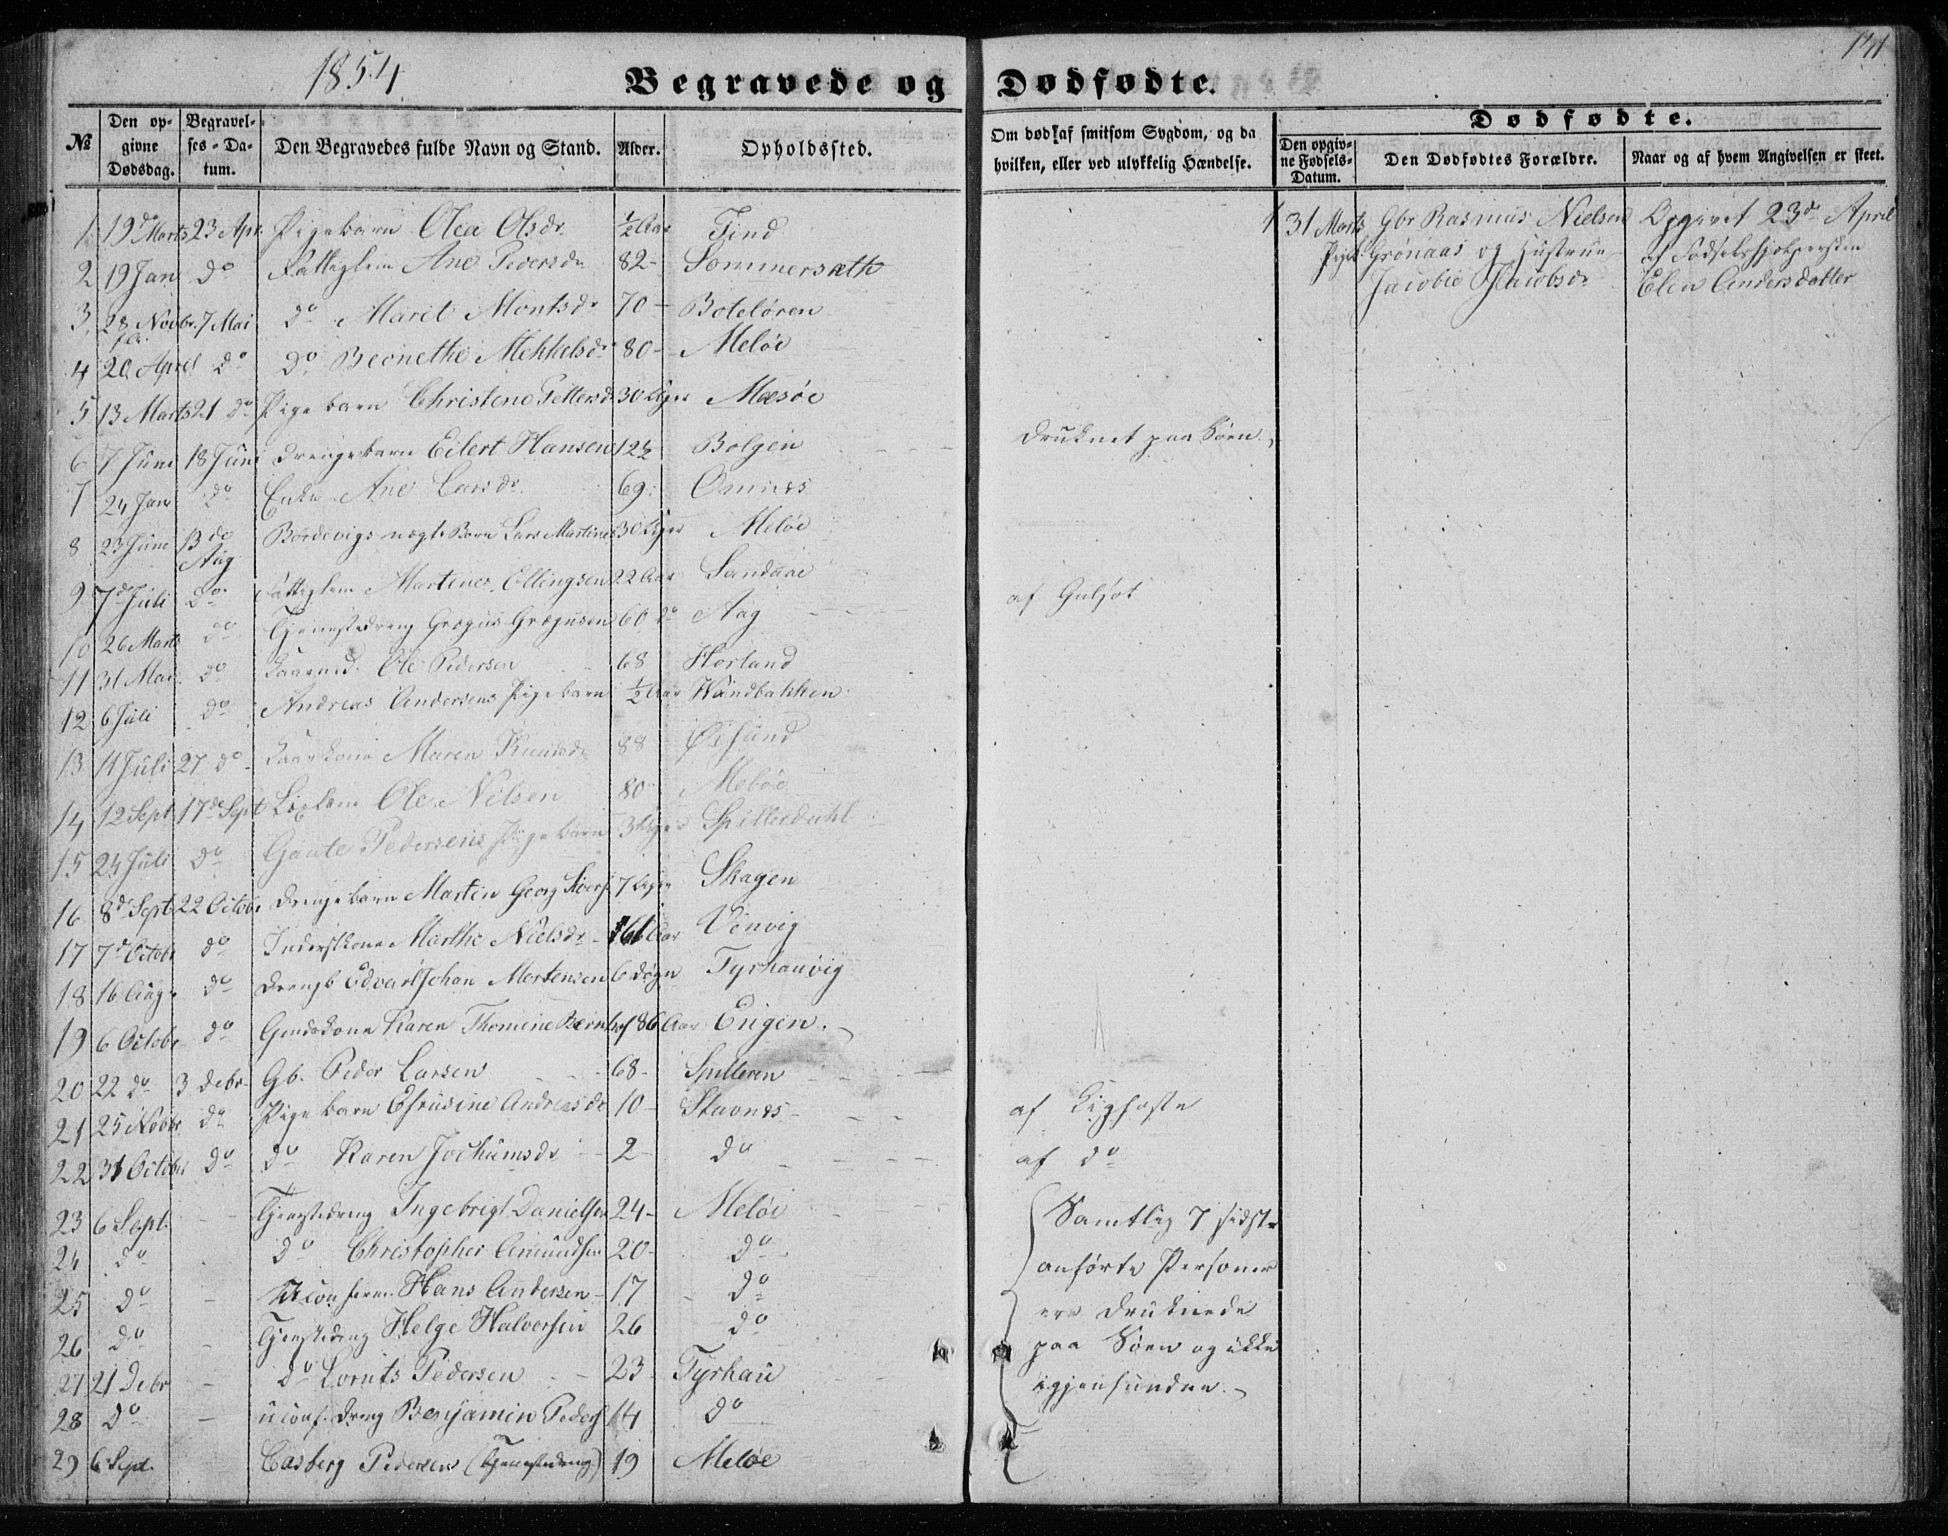 1854
141
Begravede og Dødfødte.
№
Den opgivne Dødsdag.
Begravelses-Datum.
Den Begravedes fulde Navn og Stand.
Alder.
Opholdssted.
Om død af smitsom Sygdom, og da hvilken, eller ved ulykkelig Hændelse.
Dødfødte.
Den opgivne Fødsels-Datum.
Den Dødfødtes Forældre.
Naar og af hvem Angivelsen er skeet.
1 19de Marts 23 Apr. Pigebarn Olea Olsdr ½ Aar Find
2 19 Jan do Fattiglem Ane Pedersdr 82 - Sommersæth
3 28 Novbr. 7 Mai do Marit Montsdr 70 - Boteløren
4 20 April do do Beonethe Mekkelsdr 80 - Meløe
5 13 Marts 21 do Pigebarn Christene Pettersdr 30 Uger Mæsøe
6 7 Juni 18 Juni Drengebarn Eilert Hansen 12½ Bolgen druknet paa Søen
7 24 Jan do Enke Ane Larsdr 69 Ørnes
8 23 June 13de Aug Barn Lars Martines 30 Uger Meløe
9 7de Juli do Fattiglem Martines Ellingsen 22 Aar Sandaae af Gulsot
10 26 Marts do Tjenestedreng Grægus Grægusen 60 do Aag
11 31 Mai do Kaarmd. Ole Pedersen 68 Horland
12 6 Juli do Andreas Andersens Pigebarn ½ Aar Vandbakken
13 11 Juli 27 do Kaarkone Maren Knudsdr 88 Øisund
14 12 Sept 17de Sept Ole Nilsen 80 - Meløe
15 24 Juli do Gaute Pedersens Pigebarn 3 Uger Spillerdahl
16 8de Sept 22 Octobr Drengebarn Martin Georg 7 Uger Skagen
17 7de Octobr do Inderstkone Marthe Nielsdr 61 Aar Venvig
18 16 Aug do Drengb Edvart Johan Mortensen 6 Døgn Tyrhaugvig
19 6 Octobr do Karen Thomine 86 Aar Engen
20 22 do 3 Debr Gb. Peder Larsen 68 - Spilleren
21 25 Novbr do Pigebarn Efrusine Andreasdr 10 - Stavnes af Kighoste
22 31 Octobr do do Karen Jochumsdr 2 - do af do
23 6 Sept. Tjenestedreng Ingebrigt Danielsen 24 - Meløe
24 do do Christopher Amundsen 20 - do
25 do Uconferm. Hans Andersen 17 do
26 do Tjenestedreng Helge Halvorsen 26 do
27 21 Debr do Lornts Pedersen 23 Tyrhau
28 do uconf. Dreng Benjamin Peders 14 do
29 6 Sept. Casberg Pedersen (Tjenestedreng) 19 Meløe
Samtlig 7 sidst
anførte Personer
ere druknede
paa Søen og ikke
igjenfundne.
1 31 Marts Gbr Rasmus Nielsen Opgivet 23de April
Pigeb. Grønaas og Hustrue af Fødselshjelpersken
Jacobie Jacobsdr Elen Andersdatter